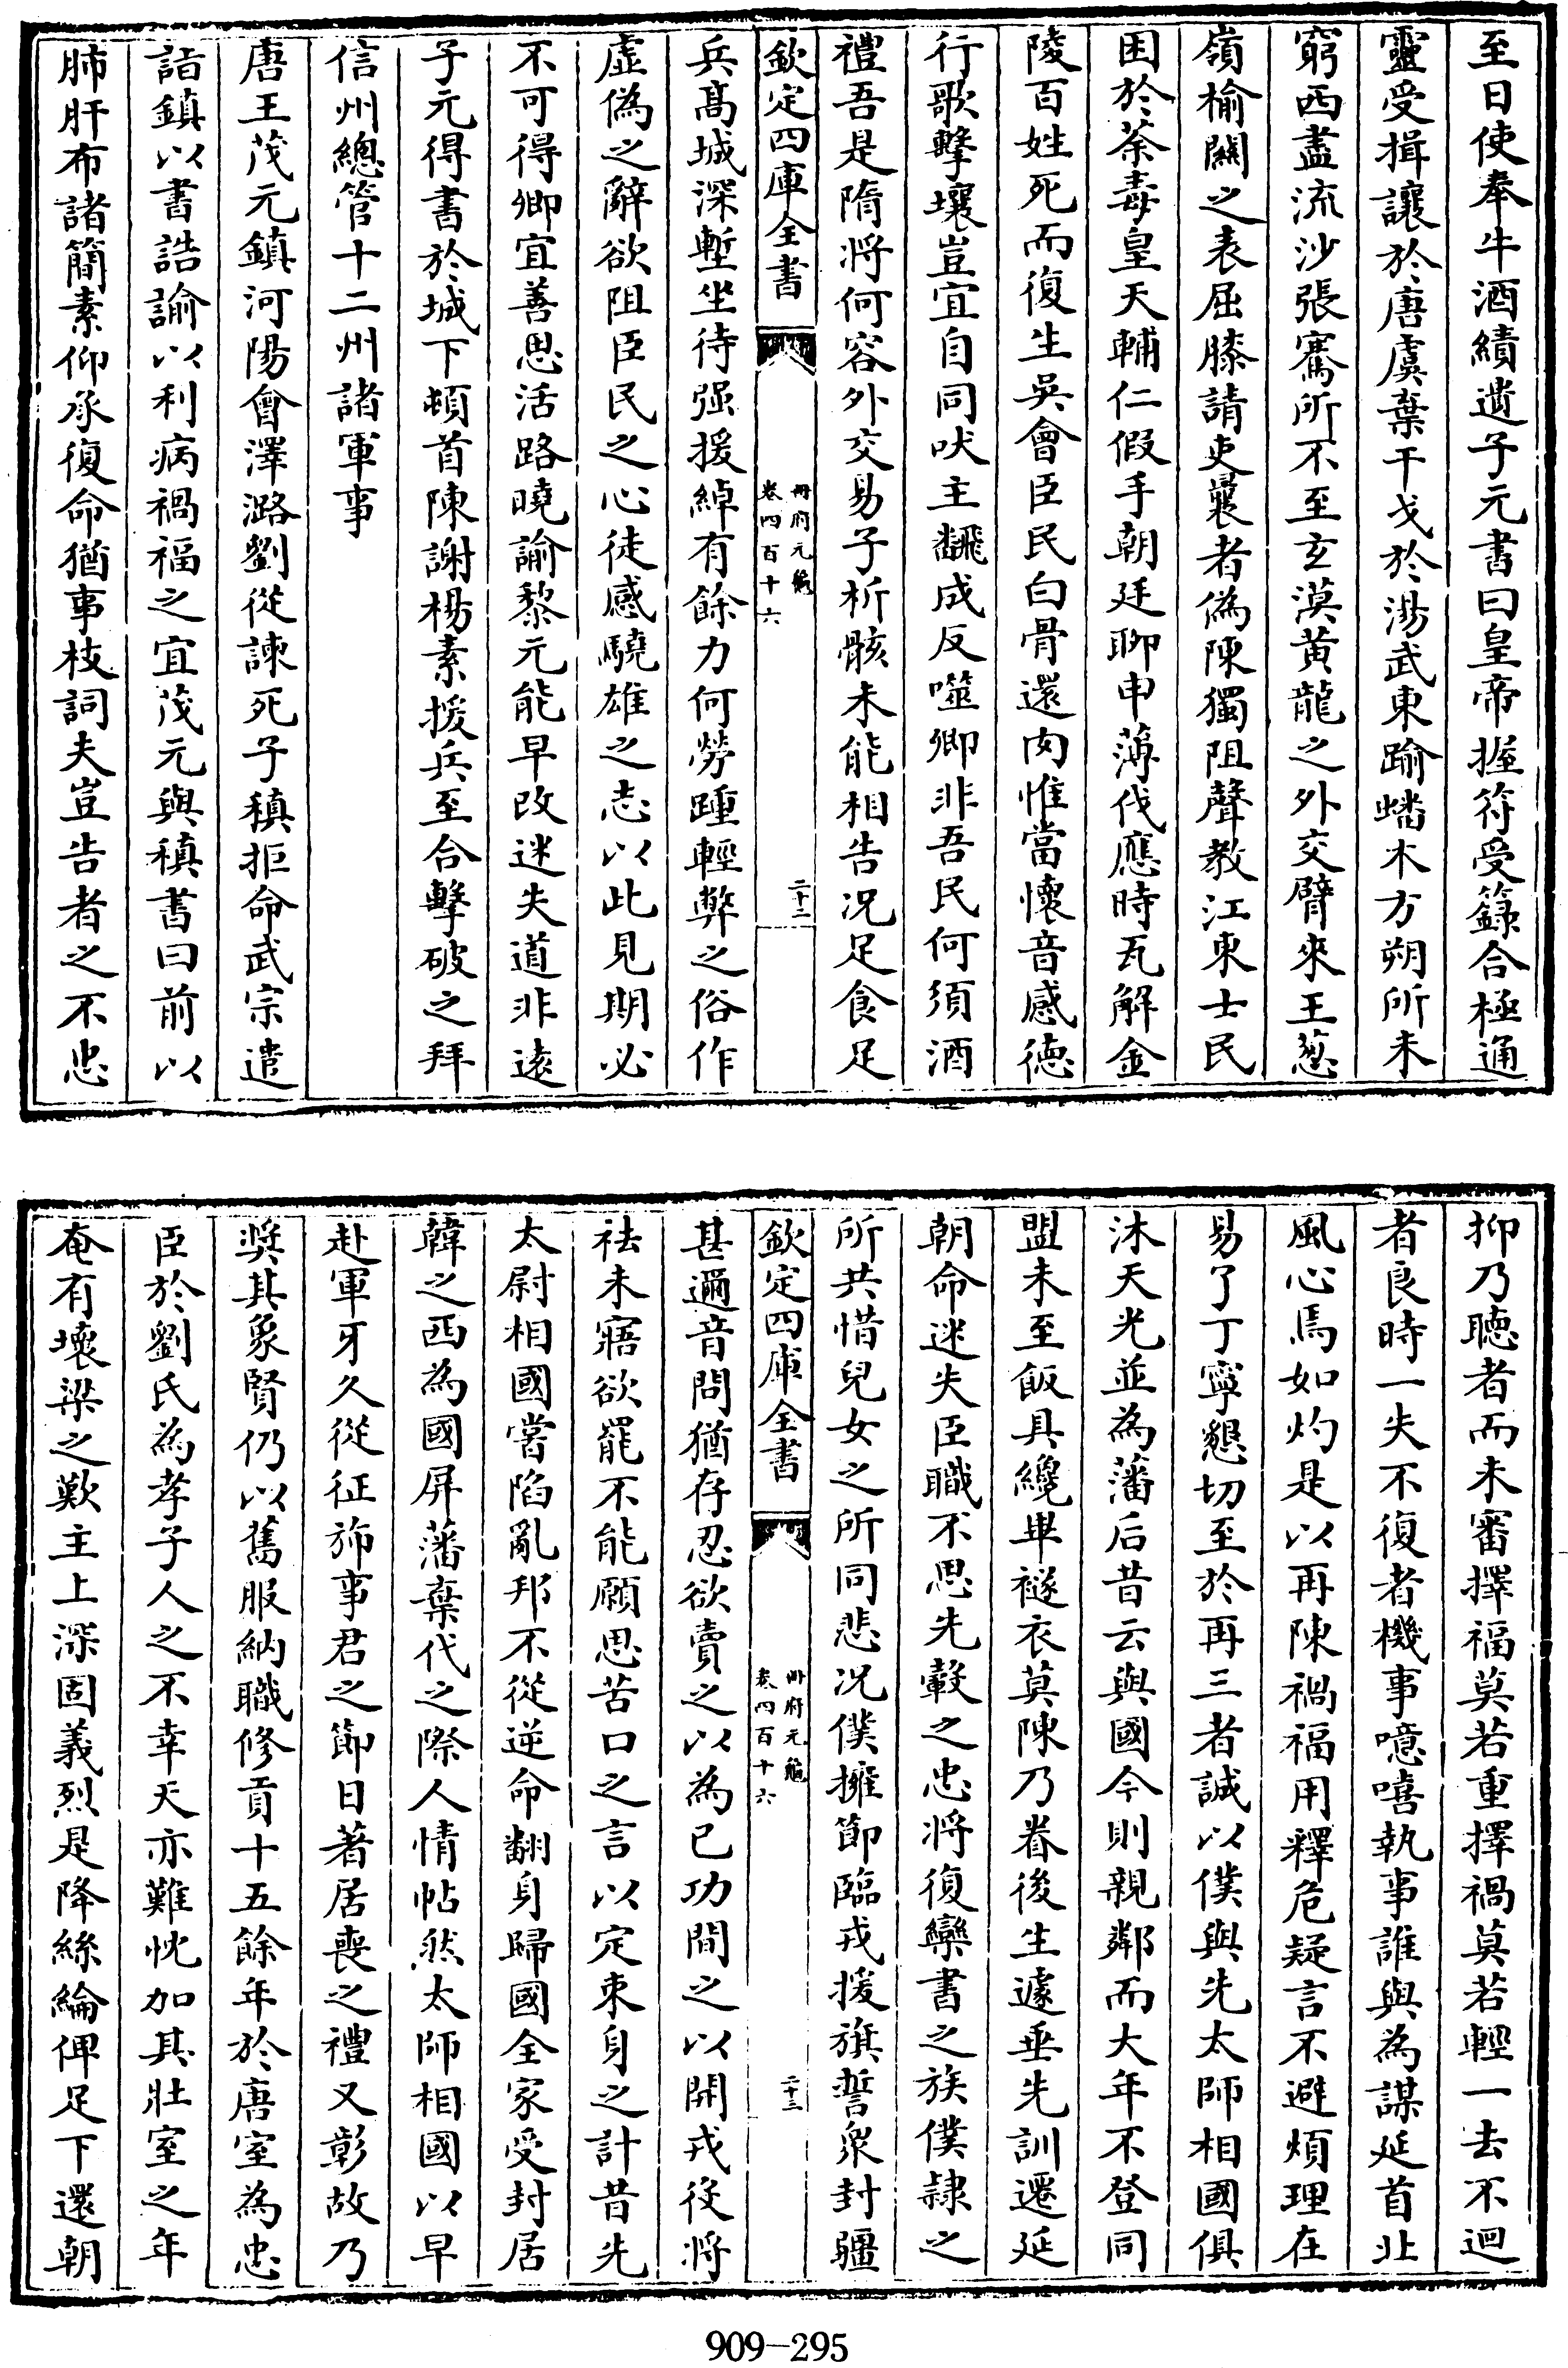 至日使奉牛酒績遺子元書曰皇帝握符受籙合極通
靈受揖讓於唐虞棄干戈於湯武東踰蟠木方朔所未
窮西盡流沙張騫所不至玄漠黄龍之外交臂來王葱
嶺榆關之表屈膝請吏曩者偽陳獨阻聲教江東士民
困於荼毒皇天輔仁假手朝廷聊申薄伐應時瓦解金
陵百姓死而復生吳會臣民白骨還肉惟當懷音感德
行歌擊壤豈宜自同吠主翻成反噬卿非吾民何須酒
禮吾是隋將何容外交易子析骸未能相告况足食足
欽定四庫全書
冊府元龜
卷四百十六
二十二
兵髙城深塹坐待强援綽有餘力何勞踵輕弊之俗作
虛偽之辭欲阻臣民之心徒惑驍雄之志以此見期必
不可得卿宜善思活路曉諭黎元能早改迷失道非遠
子元得書於城下頓首陳謝楊素援兵至合擊破之拜
信州總管十二州諸軍事
唐王茂元鎮河陽會澤潞劉從諫死子稹拒命武宗遣
詣鎮以書誥諭以利病禍福之宜茂元與稹書曰前以
肺肝布諸簡素仰承復命猶事枝詞夫豈告者之不忠
抑乃聽者而未審擇福莫若重擇禍莫若輕一去不迴
者良時一失不復者機事噫嘻執事誰與為謀延首北
風心馬如灼是以再陳禍福用釋危疑言不避煩理在
易了丁寧懇切至於再三者誠以僕與先太師相國俱
沐天光並為藩后昔云與國今則親鄰而大年不登同
盟未至飯具纔畢襚衣莫陳乃眷後生遽垂先訓遷延
朝命迷失臣職不思先轂之忠將復欒書之族僕隸之
所共惜兒女之所同悲况僕擁節臨戎援旗誓衆封疆
欽定四庫全書
冊府元龜
卷四百十六
二十三
甚邇音問猶存忍欲賣之以為已功間之以開戎役將
袪未寤欲罷不能願思苦口之言以定束身之計昔先
太尉相國嘗陷亂邦不從逆命翻身歸國全家受封居
韓之西為國屏藩棄代之際人情帖然太師相國以早
赴軍牙久從征斾事君之節日著居喪之禮又彰故乃
奬其象賢仍以舊服納職修貢十五餘年於唐室為忠
臣於劉氏為孝子人之不幸天亦難忱加其壯室之年
奄有壞梁之歎主上深固義烈是降絲綸俾足下還朝
909-295